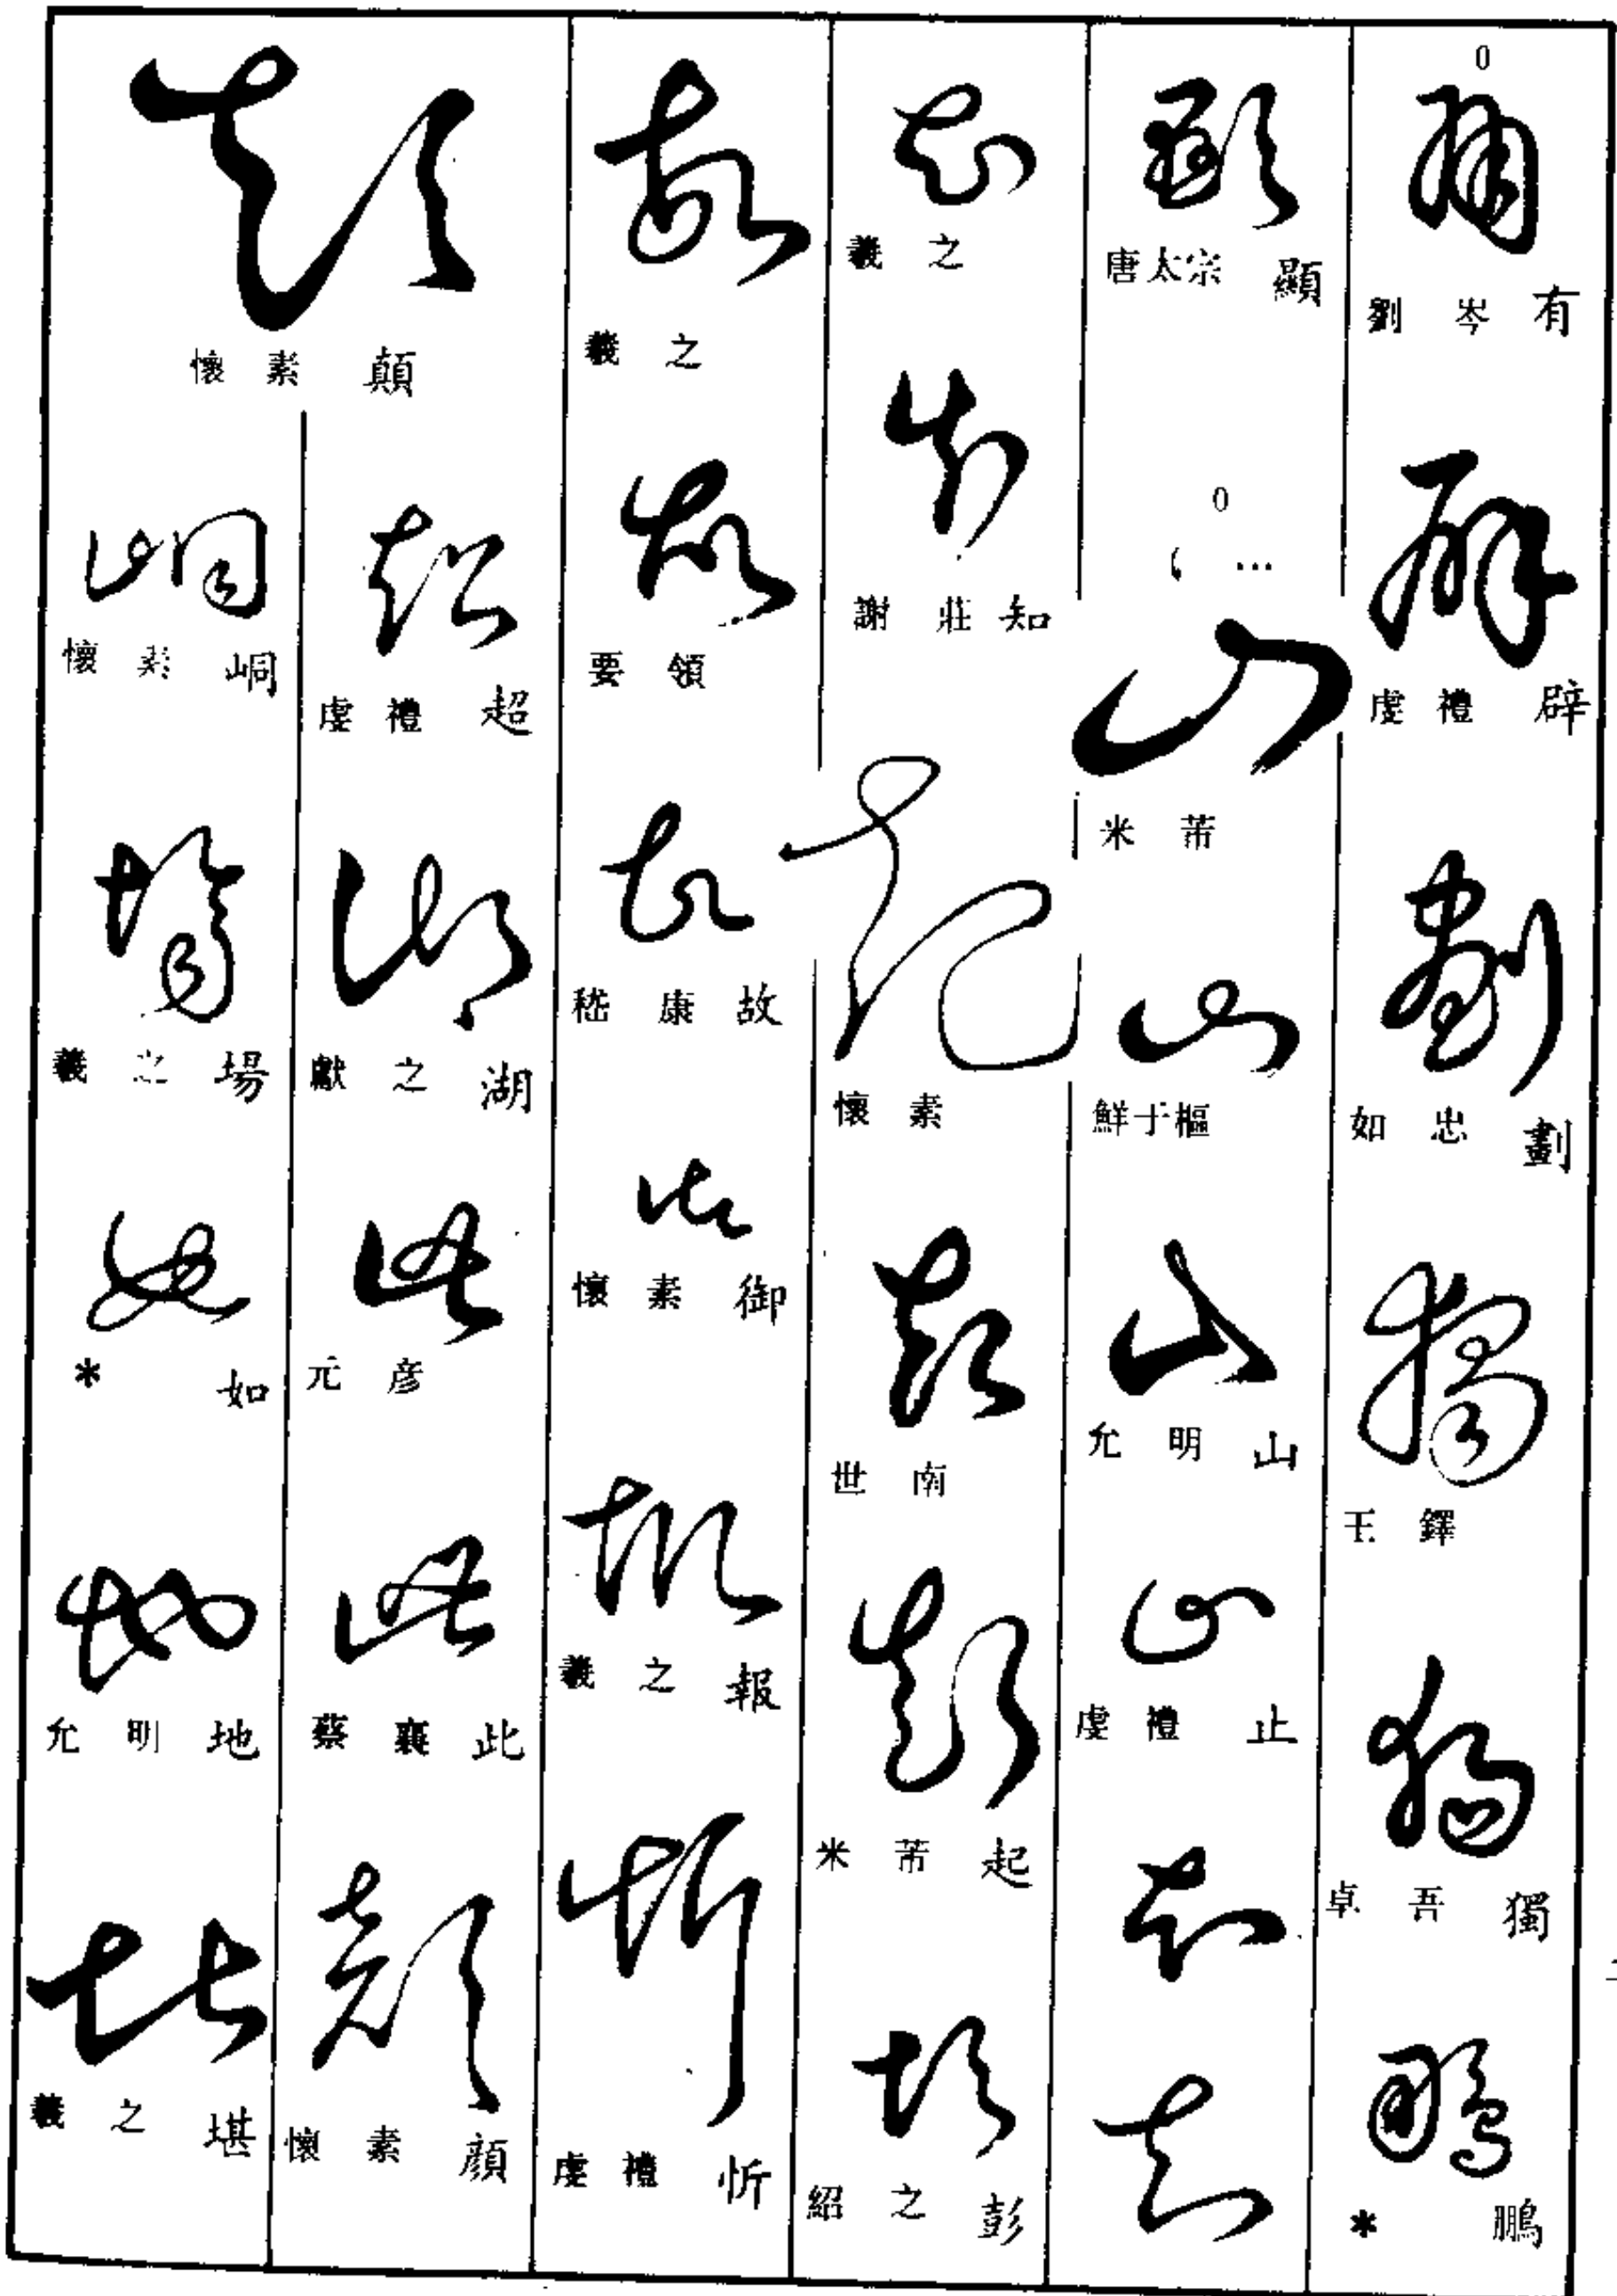 0
劉岑 有
虔禮 辟
如忠 劃
王鐸
卓吾 獨
* 鵬
唐太宗 顯
0
米芾
鮮于樞
允明 山
虔禮 止
羲之
謝莊 知
懷素
世南
米芾 起
紹之 彭
羲之
要領
嵇康 故
懷素 御
羲之 報
虔禮 忻
懷素 顛
虔禮 超
獻之 湖
元彦
蔡襄 此
懷素 顔
懷素 峒
羲之 場
* 如
允明 地
羲之 堪